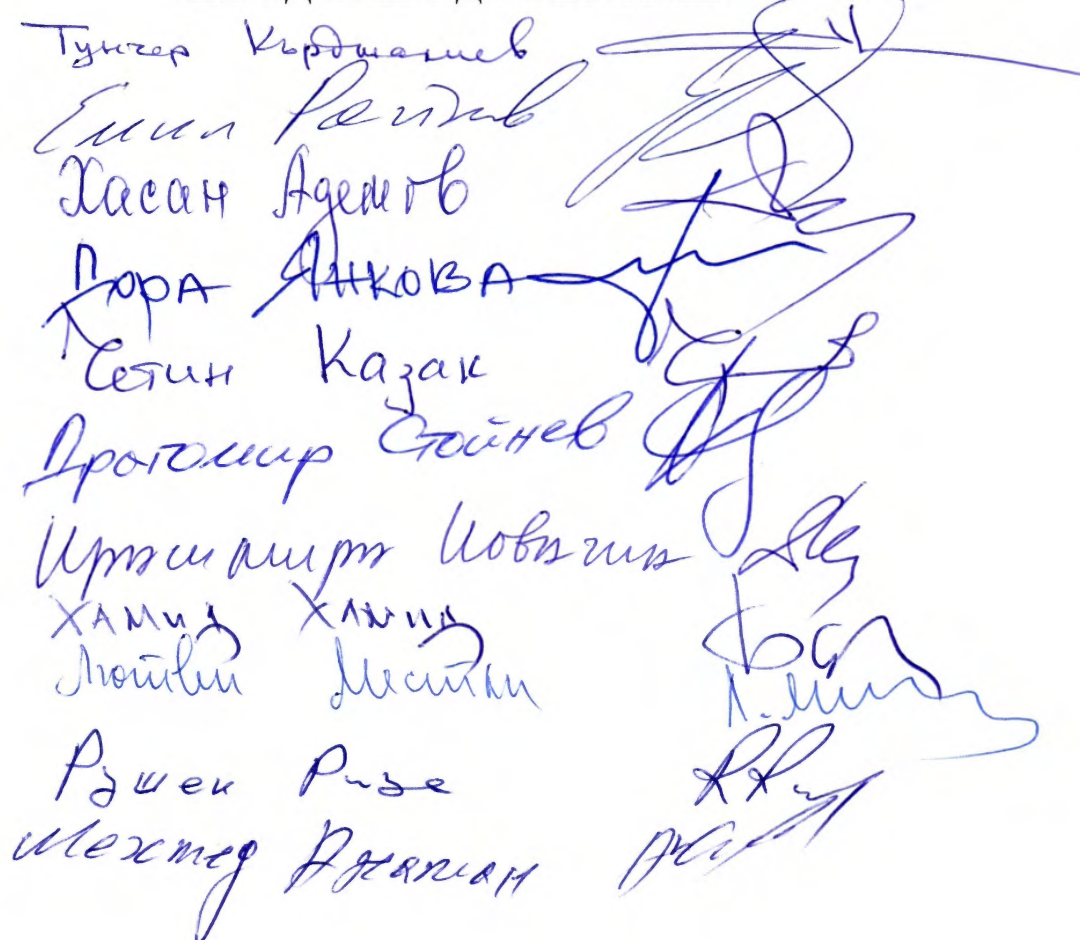 Тунчер Кърджалиев
Емил Райнов
Хасан Адемов
Дора Янкова
Четин Казак
Драгомир Стойнев
Хамид Хамид
Лютви Местан
Рушен Риза
Мехмед Джевдет